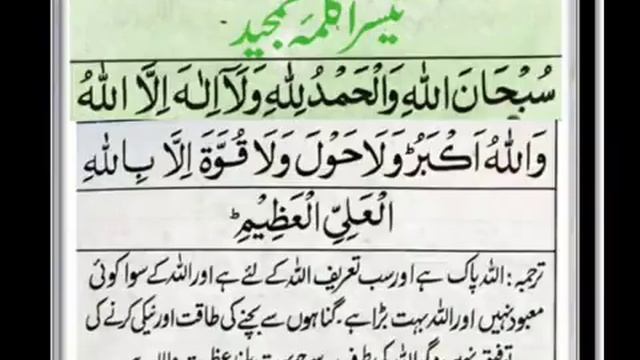 تیسرا کلمہ تمجید
سُبْحَانَ اللهِ وَالْحَمْدُ لِلّٰهِ وَلَآ اِلٰهَ اِلَّا اللهُ
وَاللهُ اَکْبَرُ ؕ وَلَا حَوْلَ وَلَا قُوَّةَ اِلَّا بِاللهِ
الْعَلِيِّ الْعَظِيْمِ ؕ
ترجمہ : اللہ پاک ہے اور سب تعریف اللہ کے لئے ہے اور اللہ کے سوا کوئی
معبود نہیں اور اللہ بہت بڑا ہے۔ گناہوں سے بچنے کی طاقت اور نیکی کرنے کی